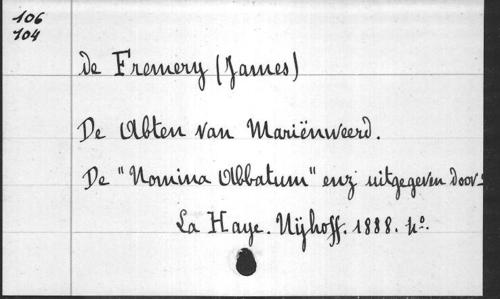 106
104
de Fremery (James)
De Abten van Mariënweerd.
De "Nomina Abbatum" enz uitgegeven door
La Haye. Nijhoff. 1888. 4º.